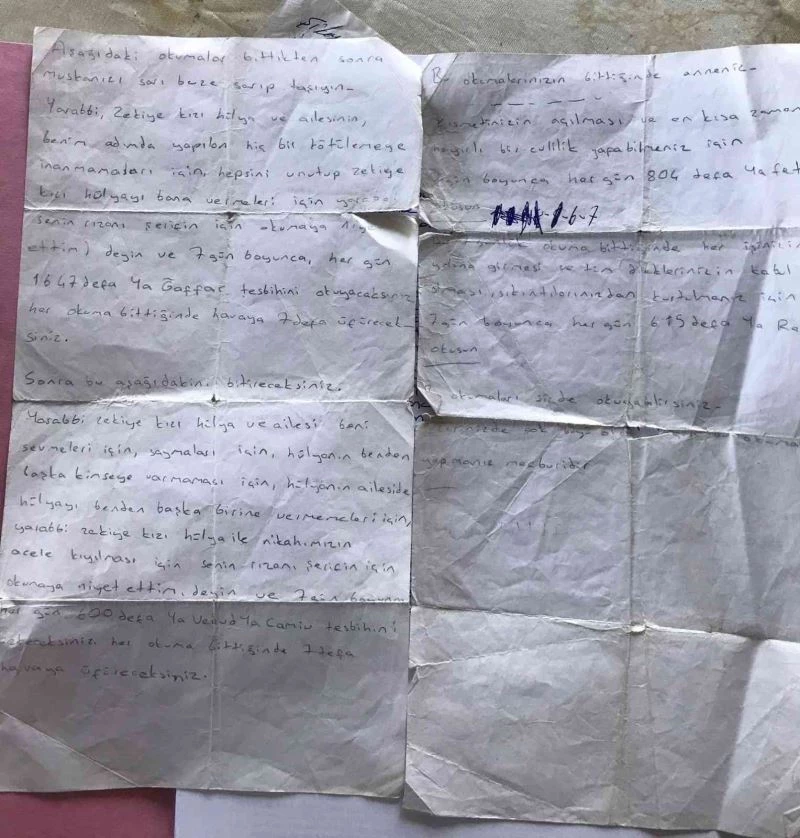 Aşağıdaki okumalar bittikten sonra
muskanızı sarı beze sarıp taşıyın-
Yarabbi, Zekiye kızı hülya ve ailesinin,
benim adımda yapılan hiç bir kötülemeye
inanmamaları için, hepsini unutup zekiye
kızı hülyayı bana vermeleri için
senin rızanı şeriçin için okumaya
ettim) deyin ve 7 gün boyunca, her gün
1647 defa Ya Gaffar tesbihini okuyacaksınız
her okuma bittiğinde havaya 7 defa üfürecek-
siniz.
Sonra bu aşağıdakini bitireceksiniz.
Yarabbi zekiye kızı hülya ve ailesi beni
sevmeleri için, saymaları için, hülyanın benden
başka kimseye varmaması için, hülyanın aileside
hülyayı benden başka birine vermemeleri için,
yarabbi zekiye kızı hülya ile nikahımızın
acele kıyılması için senin rızanı şeriçin için
okumaya niyet ettim, deyin ve 7 gün
her gün 600 defa Ya Vedud Ya Camiu tesbihini
her okuma bittiğinde 7 defa
havaya üfüreceksiniz.
Bu okumalarınızın bittiğinde anneniz-
kısmetinizin açılması ve en kısa zaman
hayırlı bir evlilik yapabilmeniz için
gün boyunca her gün 804 defa Ya
-6-7
okuma bittiğinde her işiniz
girmesi ve tüm dileklerinizin kabul
olması, sıkıntılarınızdan kurtulmanız için
7 gün boyunca her gün 615 defa Ya
okusun
okumaları sizde okuyabilirsiniz-
yapmanız mecburidir